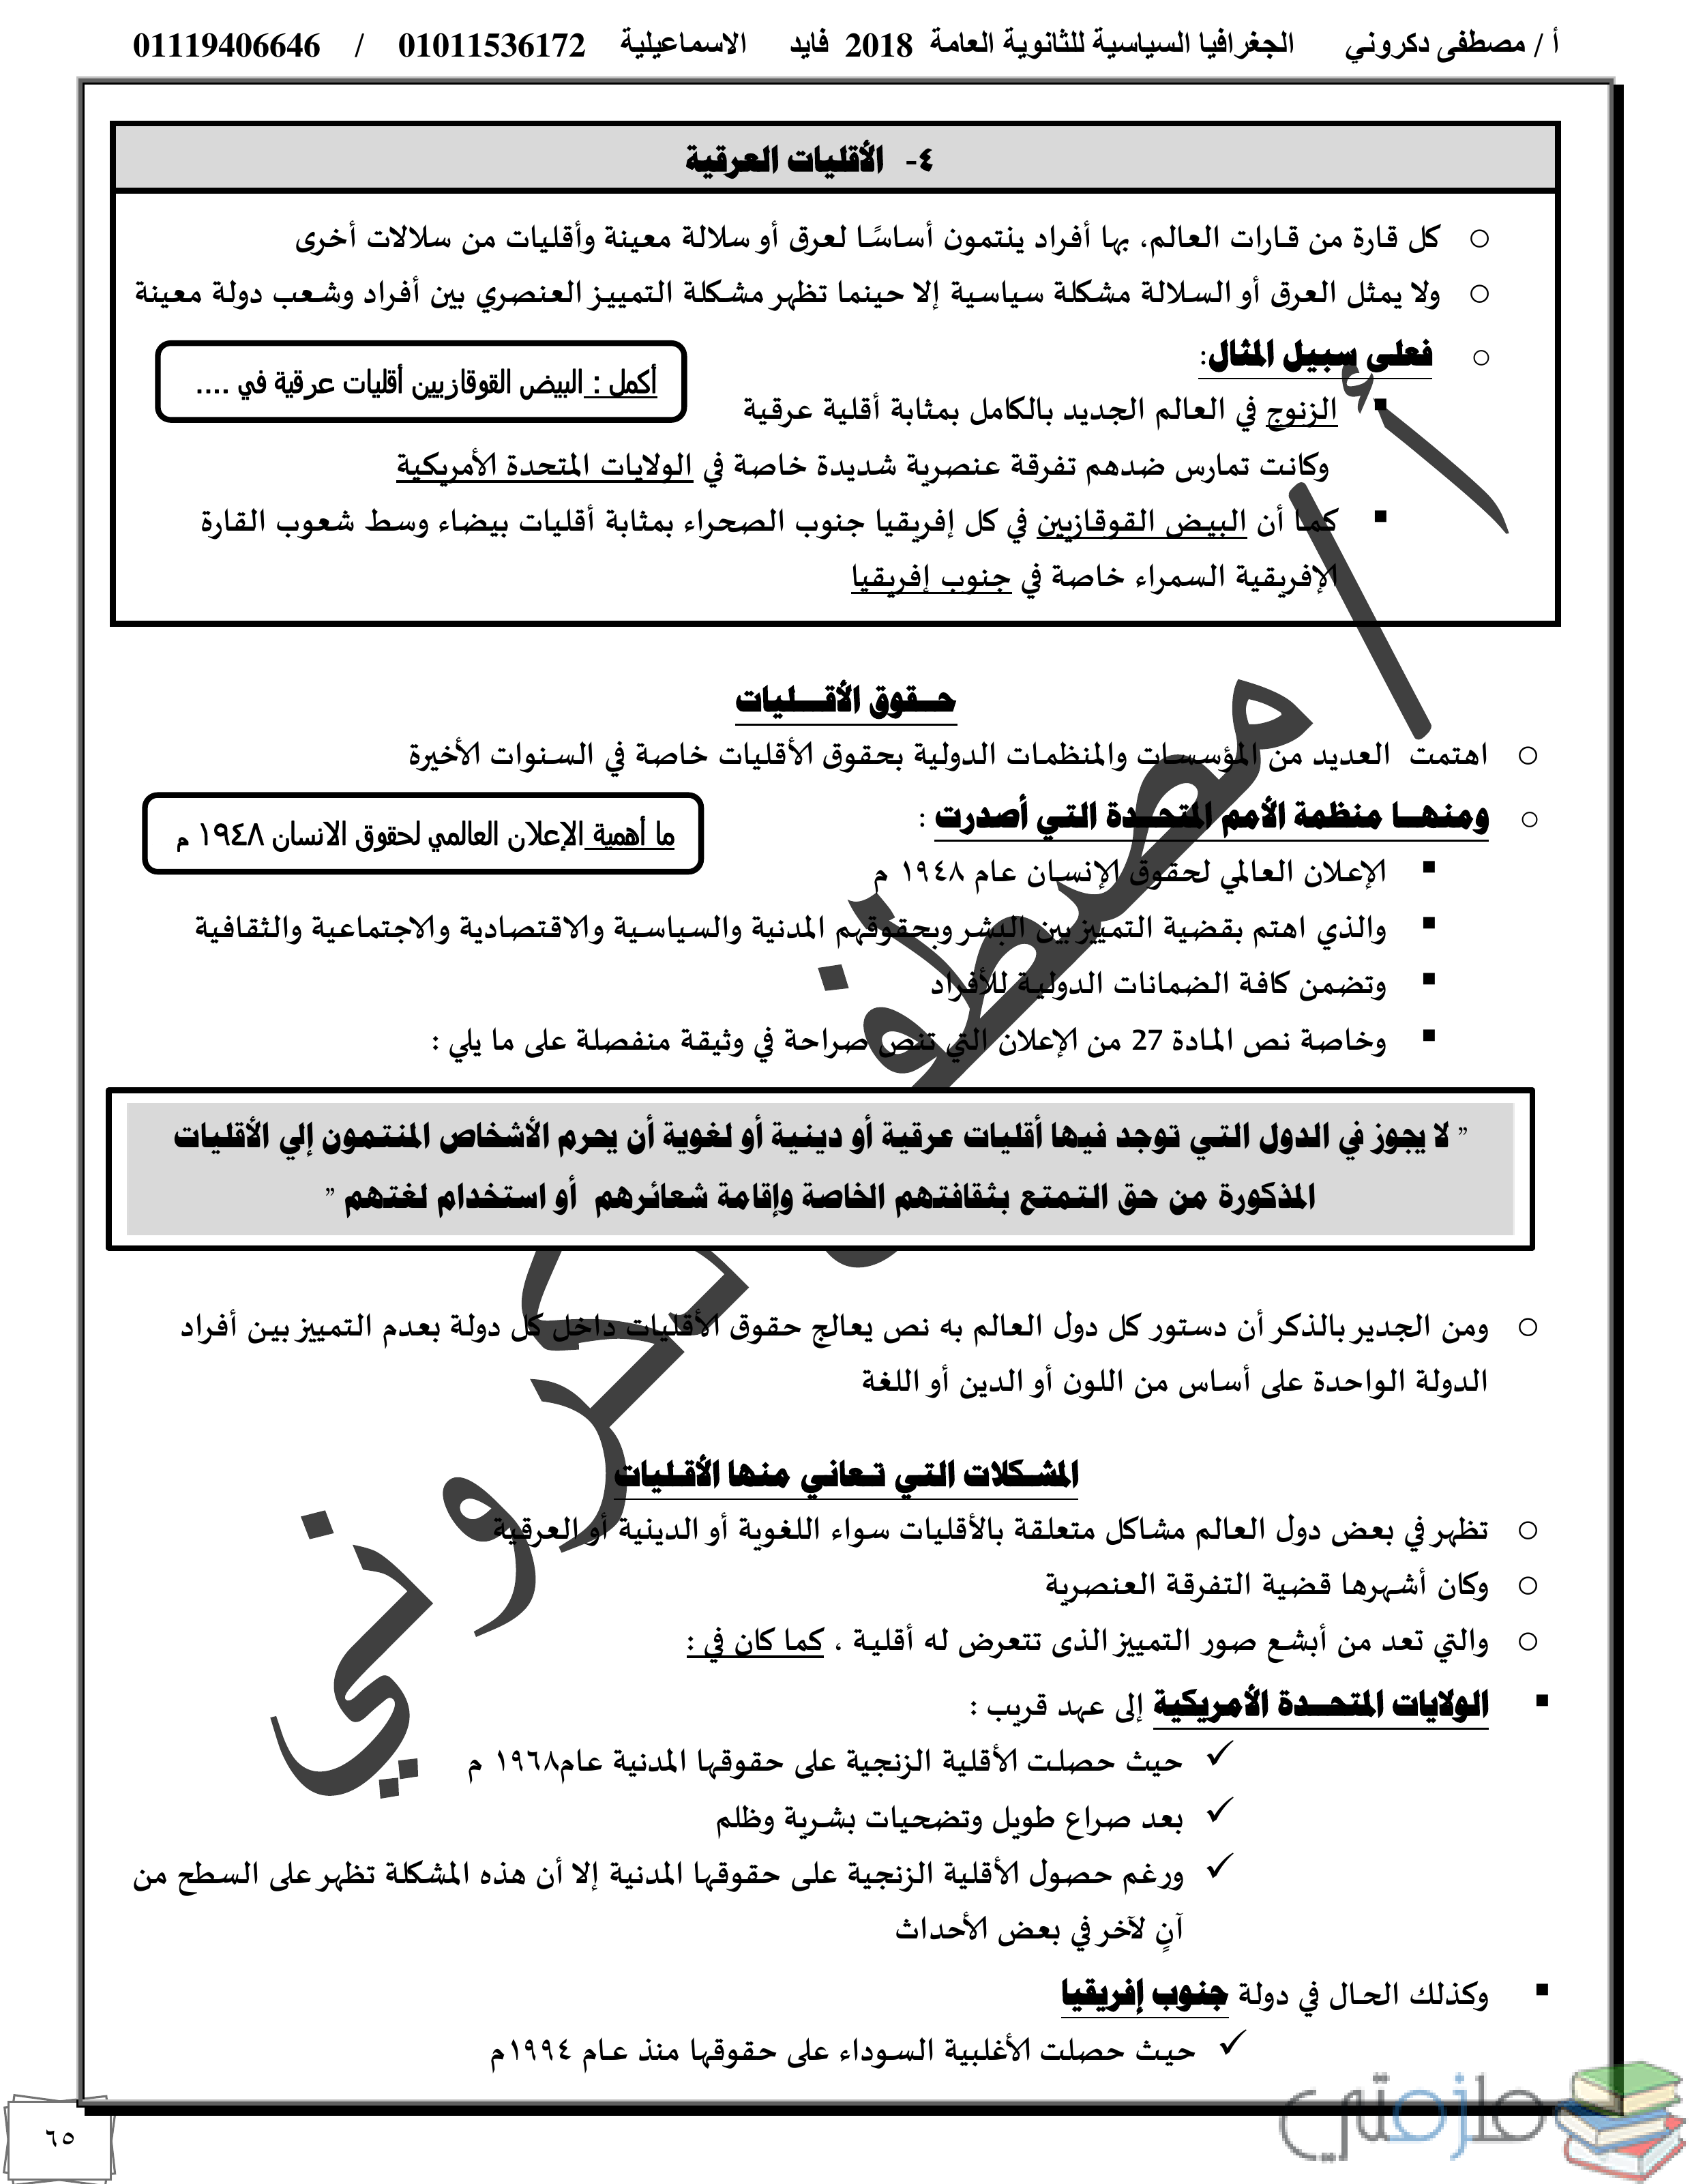 أ / مصطفى دكروني الجغرافيا السياسية للثانوية العامة 2018 فايد الاسماعيلية 01011536172 / 01119406646
٤- الأقليات العرقية
○ كل قارة من قارات العالم، بها أفراد ينتمون أساسًا لعرق أو سلالة معينة وأقليات من سلالات أخرى
○ ولا يمثل العرق أو السلالة مشكلة سياسية إلا حينما تظهر مشكلة التمييز العنصري بين أفراد وشعب دولة معينة
○ فعلى سبيل المثال:
أكمل : البيض القوقازيين أقليات عرقية في ....
▪ الزنوج في العالم الجديد بالكامل بمثابة أقلية عرقية
وكانت تمارس ضدهم تفرقة عنصرية شديدة خاصة في الولايات المتحدة الأمريكية
▪ كما أن البيض القوقازيين في كل إفريقيا جنوب الصحراء بمثابة أقليات بيضاء وسط شعوب القارة
الإفريقية السمراء خاصة في جنوب إفريقيا
حـقوق الأقـليات
○ اهتمت العديد من المؤسسات والمنظمات الدولية بحقوق الأقليات خاصة في السنوات الأخيرة
○ ومنهـا منظمة الأمم المتحـدة التي أصدرت :
ما أهمية الإعلان العالمي لحقوق الانسان ١٩٤٨ م
▪ الإعلان العالمي لحقوق الإنسان عام ١٩٤٨ م
▪ والذي اهتم بقضية التمييز بين البشر وبحقوقهم المدنية والسياسية والاقتصادية والاجتماعية والثقافية
▪ وتضمن كافة الضمانات الدولية للأفراد
▪ وخاصة نص المادة 27 من الإعلان التي تنص صراحة في وثيقة منفصلة على ما يلي :
” لا يجوز في الدول التي توجد فيها أقليات عرقية أو دينية أو لغوية أن يحرم الأشخاص المنتمون إلي الأقليات
المذكورة من حق التمتع بثقافتهم الخاصة وإقامة شعائرهم أو استخدام لغتهم ”
○ ومن الجدير بالذكر أن دستور كل دول العالم به نص يعالج حقوق الأقليات داخل كل دولة بعدم التمييز بين أفراد
الدولة الواحدة على أساس من اللون أو الدين أو اللغة
المشـكلات التي تـعاني منها الأقـليات
○ تظهر في بعض دول العالم مشاكل متعلقة بالأقليات سواء اللغوية أو الدينية أو العرقية
○ وكان أشهرها قضية التفرقة العنصرية
○ والتي تعد من أبشع صور التمييز الذى تتعرض له أقلية ، كما كان في :
▪ الولايات المتحـدة الأمريكية إلى عهد قريب :
✓ حيث حصلت الأقلية الزنجية على حقوقها المدنية عام١٩٦٨ م
✓ بعد صراع طويل وتضحيات بشرية وظلم
✓ ورغم حصول الأقلية الزنجية على حقوقها المدنية إلا أن هذه المشكلة تظهر على السطح من
آنٍ لآخر في بعض الأحداث
▪ وكذلك الحال في دولة جنوب إفريقيا
✓ حيث حصلت الأغلبية السوداء على حقوقها منذ عام ١٩٩٤م
أ / مصطفى دكروني
ملزمتي
٦٥